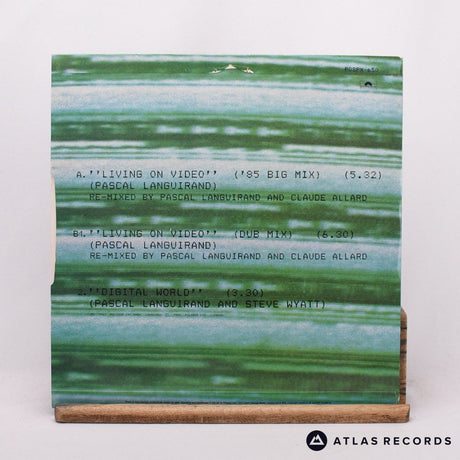 A.''LIVING ON VIDEO'' ('85 BIG MIX) (5.32)
(PASCAL LANGUIRAND)
RE-MIXED BY PASCAL LANGUIRAND AND CLAUDE ALLARD
B1.''LIVING ON VIDEO'' (DUB MIX) (6.30)
(PASCAL LANGUIRAND)
RE-MIXED BY PASCAL LANGUIRAND AND CLAUDE ALLARD
2.''DIGITAL WORLD'' (3.30)
(PASCAL LANGUIRAND AND STEVE WYATT)
ATLAS RECORDS